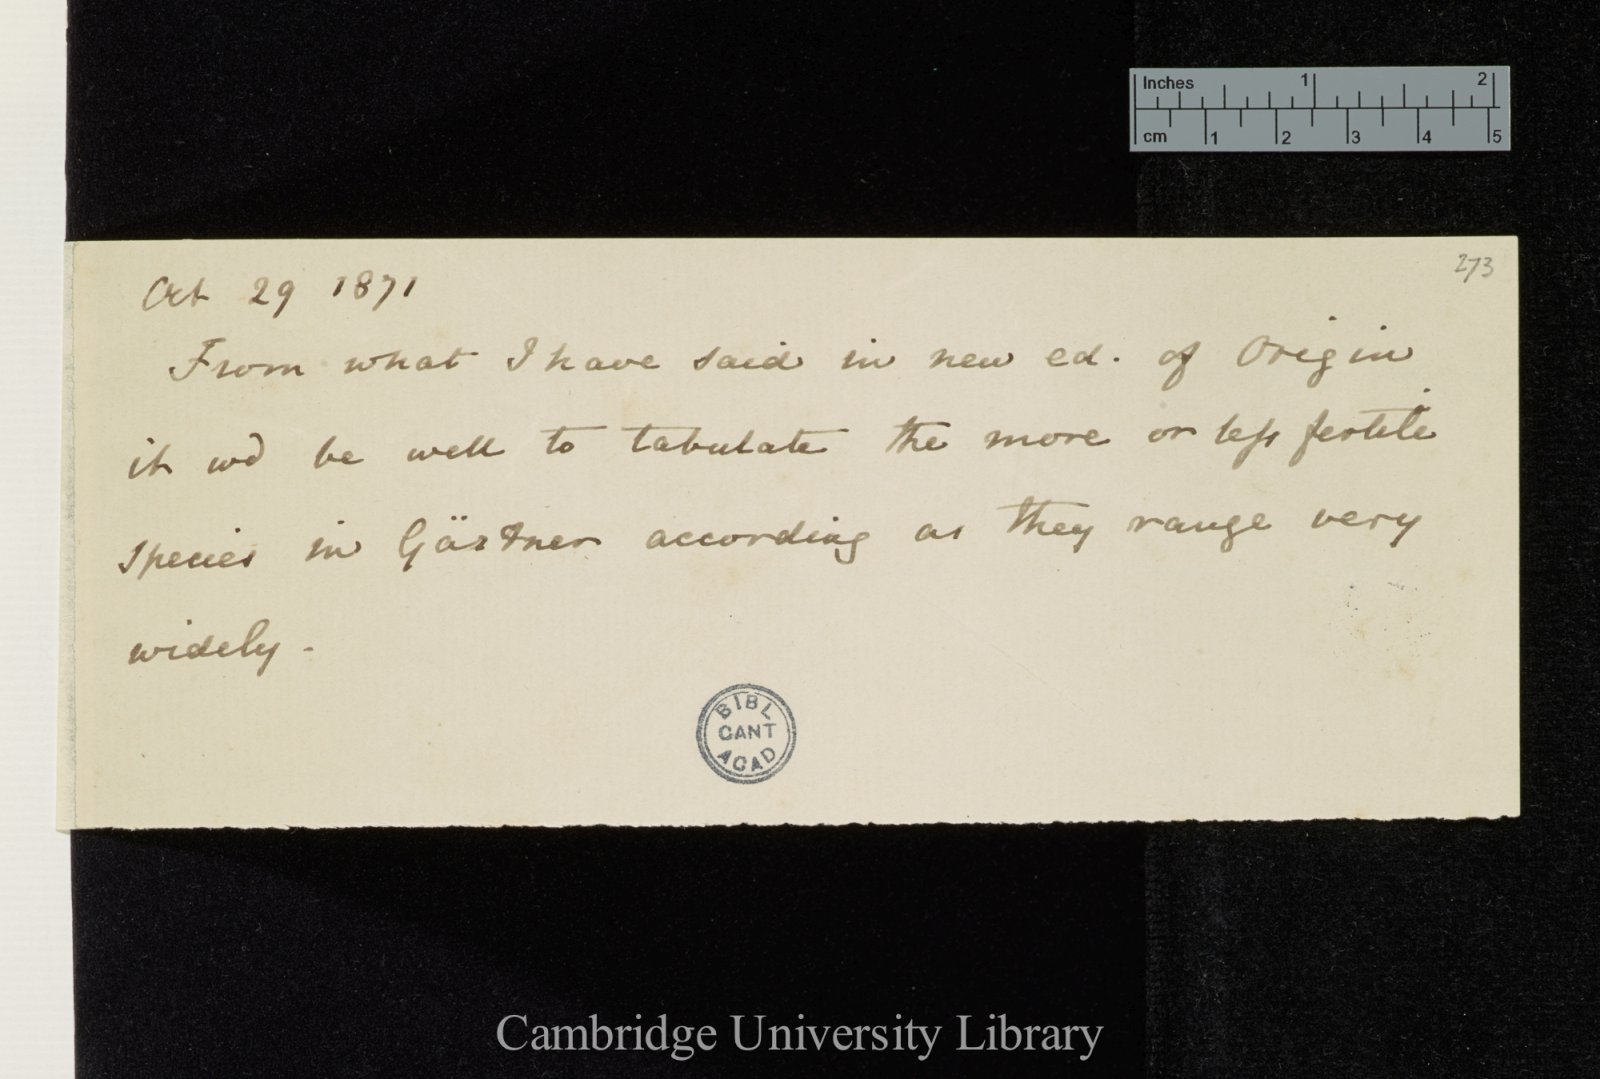 Inches 1 2
cm 1 2 3 4 5
273
Oct 29 1871
From what I have said in new ed. of Origin
it wd be well to tabulate the more or less fertile
species in Gärtner according as they range very
widely -
BIBL
CANT
ACAD
Cambridge University Library